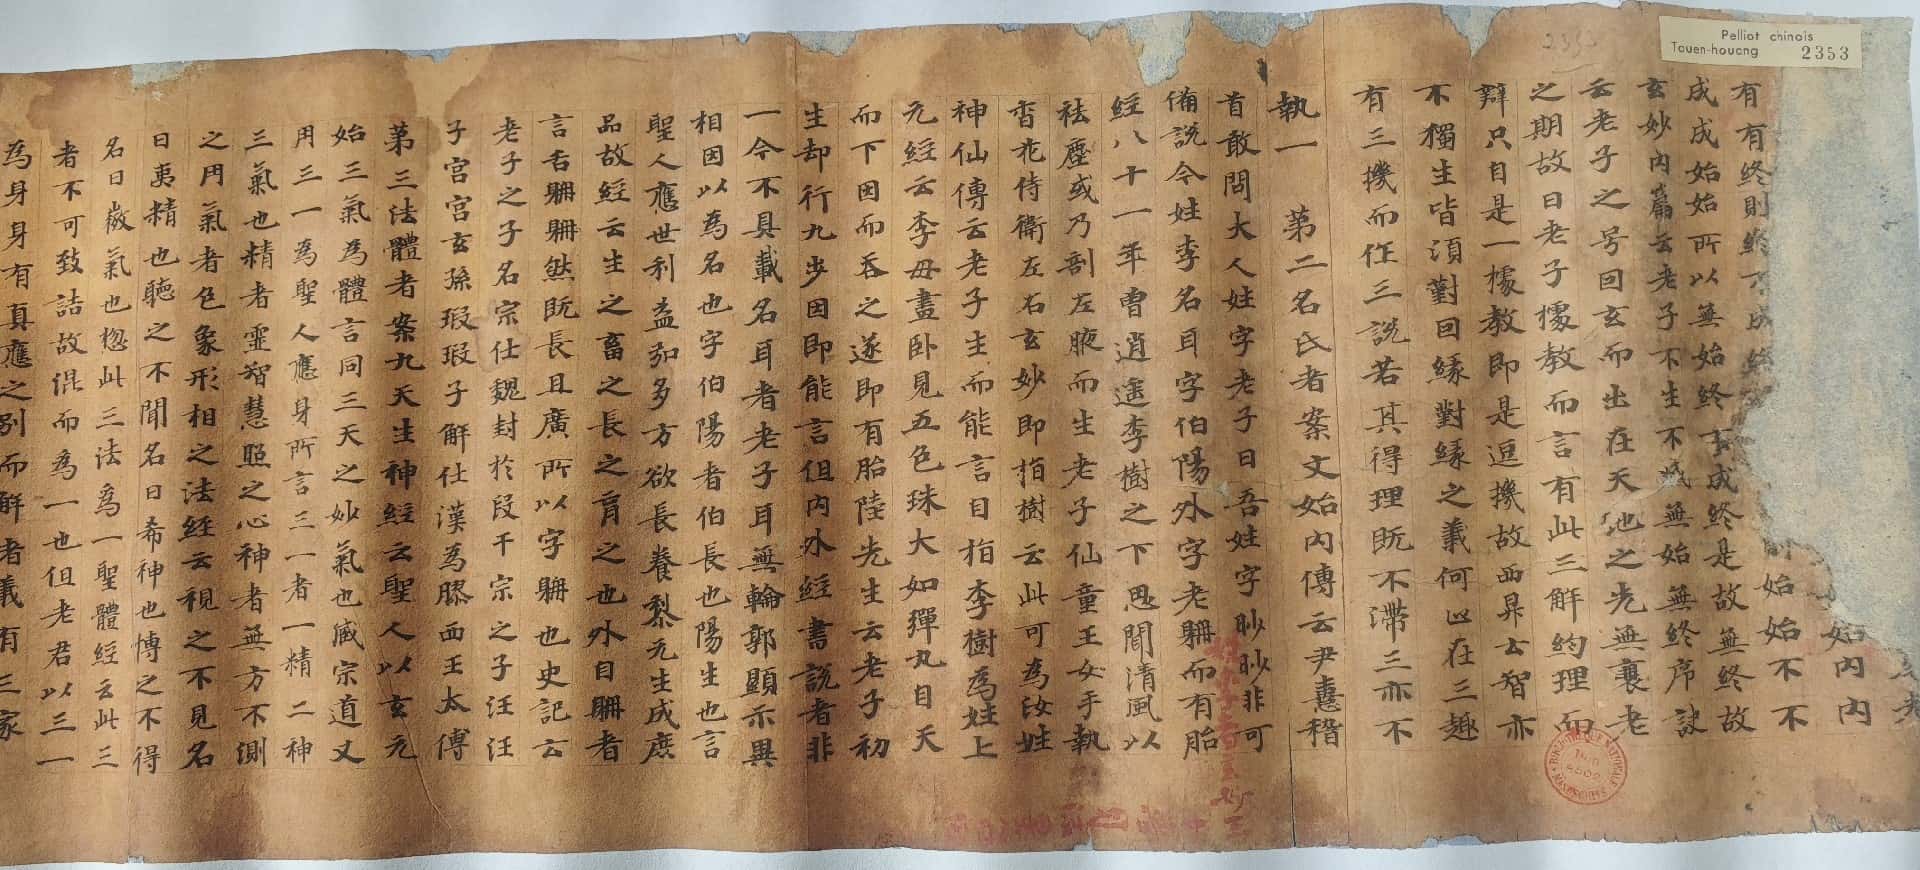 Pelliot chinois
Touen-houang 2353
2353
老
始內內
始始不不
有有終則終不成終
成成始始所以無始終不成終是故無終故
玄妙內篇云老子不生不滅無始無終序訣
云老子之号因玄而出在天地之先無襄老
之期故曰老子據教而言有此三解約理而
辯只自是一據教即是逗機故西昇云智亦
不獨生皆須對因緣對緣之義何必在三趣
有三機而作三說若其得理既不滯三亦不
執一 第二名氏者案文始內傳云尹憙稽
首敢問大人姓字老子曰吾姓字眇眇非可
備說今姓李名耳字伯陽外字老聃而有胎
經八十一年曾逍遙李樹之下思聞清風以
祛塵或乃剖左腋而生老子仙童玉女手執
香花侍衛左右玄妙即指樹云此可為汝姓
神仙傳云老子生而能言目指李樹為姓上
元經云李母晝臥見五色珠大如彈丸自天
而下因而吞之遂即有胎陸先生云老子初
生却行九步因即能言但內外經書說者非
一今不具載名耳者老子耳無輪郭顯示異
相因以為名也字伯陽者伯長也陽生也言
聖人應世利益弘多方欲長養黎元生成庶
品故經云生之畜之長之育之也外自聃者
言舌聃聃然既長且廣所以字聃也史記云
老子之子名宗仕魏封於段干宗之子汪汪
子宮宮玄孫瑕瑕子解仕漢為膠西王太傅
第三法體者案九天生神經云聖人以玄元
始三氣為體言同三天之妙氣也臧宗道又
用三一為聖人應身所言三一者一精二神
三氣也精者靈智慧照之心神者無方不測
之用氣者色象形相之法經云視之不見名
曰夷精也聽之不聞名曰希神也博之不得
名曰微氣也惚此三法為一聖體經云此三
者不可致詰故混而為一也但老君以三一
為身身有真應之別而解者義有三家